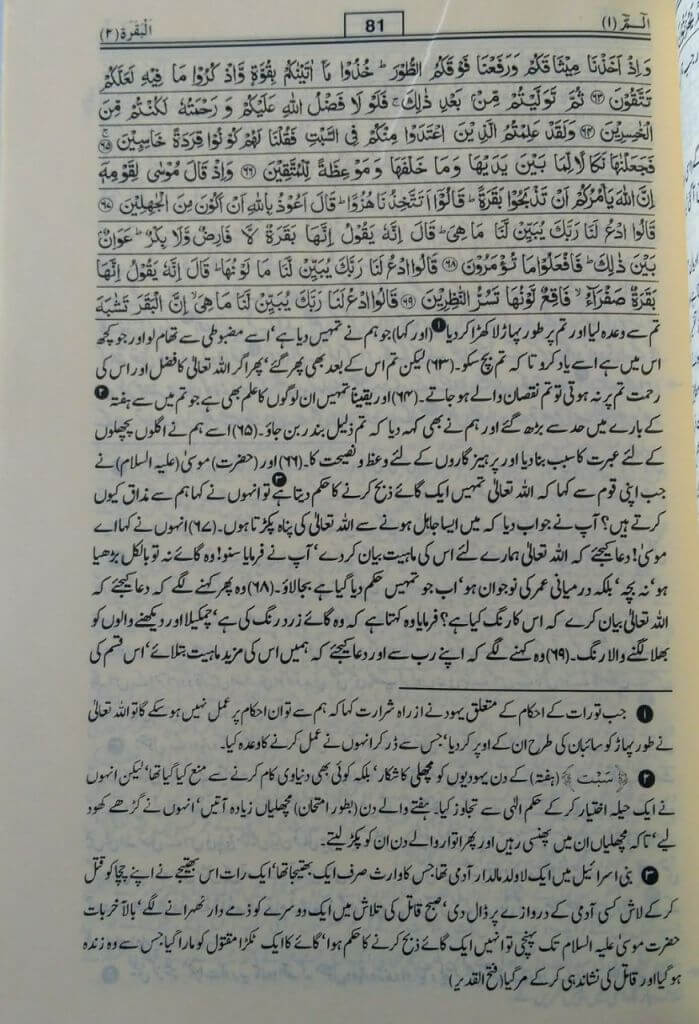 الٓمّٓ (١)
81
الْبَقَرَة (٢)
وَاِذْ اَخَذْنَا مِيْثَاقَكُمْ وَرَفَعْنَا فَوْقَكُمُ الطُّوْرَ ؕ خُذُوْا مَاۤ اٰتَيْنٰكُمْ بِقُوَّةٍ وَّاذْكُرُوْا مَا فِيْهِ لَعَلَّكُمْ
تَتَّقُوْنَ ۝۶۳ ثُمَّ تَوَلَّيْتُمْ مِّنْۢ بَعْدِ ذٰلِكَ ۚ فَلَوْ لَا فَضْلُ اللّٰهِ عَلَيْكُمْ وَ رَحْمَتُهٗ لَكُنْتُمْ مِّنَ
الْخٰسِرِيْنَ ۝۶۴ وَلَقَدْ عَلِمْتُمُ الَّذِيْنَ اعْتَدَوْا مِنْكُمْ فِي السَّبْتِ فَقُلْنَا لَهُمْ كُوْنُوْا قِرَدَةً خَاسِـِٕيْنَ ۝۶۵
فَجَعَلْنٰهَا نَكَالًا لِّمَا بَيْنَ يَدَيْهَا وَمَا خَلْفَهَا وَمَوْعِظَةً لِّلْمُتَّقِيْنَ ۝۶۶ وَاِذْ قَالَ مُوْسٰى لِقَوْمِهٖۤ
اِنَّ اللّٰهَ يَاْمُرُكُمْ اَنْ تَذْبَحُوْا بَقَرَةً ؕ قَالُوْۤا اَتَتَّخِذُنَا هُزُوًا ؕ قَالَ اَعُوْذُ بِاللّٰهِ اَنْ اَكُوْنَ مِنَ الْجٰهِلِيْنَ ۝۶۷
قَالُوا ادْعُ لَنَا رَبَّكَ يُبَيِّنْ لَّنَا مَا هِيَ ؕ قَالَ اِنَّهٗ يَقُوْلُ اِنَّهَا بَقَرَةٌ لَّا فَارِضٌ وَّلَا بِكْرٌ ؕ عَوَانٌۢ
بَيْنَ ذٰلِكَ ؕ فَافْعَلُوْا مَا تُؤْمَرُوْنَ ۝۶۸ قَالُوا ادْعُ لَنَا رَبَّكَ يُبَيِّنْ لَّنَا مَا لَوْنُهَا ؕ قَالَ اِنَّهٗ يَقُوْلُ اِنَّهَا
بَقَرَةٌ صَفْرَآءُ ۙ فَاقِعٌ لَّوْنُهَا تَسُرُّ النّٰظِرِيْنَ ۝۶۹ قَالُوا ادْعُ لَنَا رَبَّكَ يُبَيِّنْ لَّنَا مَا هِيَ ۙ اِنَّ الْبَقَرَ تَشٰبَهَ
تم سے وعدہ لیا اور تم پر طور پہاڑ لا کھڑا کر دیا ❶ (اور کہا) جو ہم نے تمہیں دیا ہے‘ اسے مضبوطی سے تھام لو اور جو کچھ
اس میں ہے اسے یاد کرو تاکہ تم بچ سکو۔ (۶۳) لیکن تم اس کے بعد بھی پھر گئے‘ پھر اگر اللہ تعالیٰ کا فضل اور اس کی
رحمت تم پر نہ ہوتی تو تم نقصان والے ہو جاتے۔ (۶۴) اور یقیناً تمہیں ان لوگوں کا علم بھی ہے جو تم میں سے ہفتہ ❷
کے بارے میں حد سے بڑھ گئے اور ہم نے بھی کہہ دیا کہ تم ذلیل بندر بن جاؤ۔ (۶۵) اسے ہم نے اگلوں پچھلوں
کے لئے عبرت کا سبب بنا دیا اور پرہیز گاروں کے لئے وعظ و نصیحت کا۔ (۶۶) اور (حضرت) موسیٰ (علیہ السلام) نے
جب اپنی قوم سے کہا کہ اللہ تعالیٰ تمہیں ایک گائے ذبح کرنے کا حکم دیتا ہے ❸ تو انہوں نے کہا ہم سے مذاق کیوں
کرتے ہیں؟ آپ نے جواب دیا کہ میں ایسا جاہل ہونے سے اللہ تعالیٰ کی پناہ پکڑتا ہوں۔ (۶۷) انہوں نے کہا اے
موسیٰ! دعا کیجئے کہ اللہ تعالیٰ ہمارے لئے اس کی ماہیت بیان کر دے‘ آپ نے فرمایا سنو! وہ گائے نہ تو بالکل بڑھیا
ہو‘ نہ بچہ‘ بلکہ درمیانی عمر کی نوجوان ہو‘ اب جو تمہیں حکم دیا گیا ہے بجا لاؤ۔ (۶۸) وہ پھر کہنے لگے کہ دعا کیجئے کہ
اللہ تعالیٰ بیان کرے کہ اس کا رنگ کیا ہے؟ فرمایا وہ کہتا ہے کہ وہ گائے زرد رنگ کی ہے‘ چمکیلا اور دیکھنے والوں کو
بھلا لگنے والا رنگ۔ (۶۹) وہ کہنے لگے کہ اپنے رب سے اور دعا کیجئے کہ ہمیں اس کی مزید ماہیت بتلائے‘ اس قسم کی
❶ جب تورات کے احکام کے متعلق یہود نے از راہ شرارت کہا کہ ہم سے تو ان احکام پر عمل نہیں ہو سکے گا تو اللہ تعالیٰ
نے طور پہاڑ کو سائبان کی طرح ان کے اوپر کر دیا‘ جس سے ڈر کر انہوں نے عمل کرنے کا وعدہ کیا۔
❷ ﴿ سَبْت ﴾ (ہفتہ) کے دن یہودیوں کو مچھلی کا شکار‘ بلکہ کوئی بھی دنیاوی کام کرنے سے منع کیا گیا تھا‘ لیکن انہوں
نے ایک حیلہ اختیار کر کے حکم الٰہی سے تجاوز کیا۔ ہفتے والے دن (بطور امتحان) مچھلیاں زیادہ آتیں‘ انہوں نے گڑھے کھود
لیے‘ تاکہ مچھلیاں ان میں پھنسی رہیں اور پھر اتوار والے دن ان کو پکڑ لیتے۔
❸ بنی اسرائیل میں ایک لا ولد مالدار آدمی تھا جس کا وارث صرف ایک بھتیجا تھا‘ ایک رات اس بھتیجے نے اپنے چچا کو قتل
کر کے لاش کسی آدمی کے دروازے پر ڈال دی‘ صبح قاتل کی تلاش میں ایک دوسرے کو ذمے دار ٹھہرانے لگے‘ بالآخر بات
حضرت موسیٰ علیہ السلام تک پہنچی تو انہیں ایک گائے ذبح کرنے کا حکم ہوا‘ گائے کا ایک ٹکڑا مقتول کو مارا گیا جس سے وہ زندہ
ہو گیا اور قاتل کی نشاندہی کر کے مر گیا (فتح القدیر)